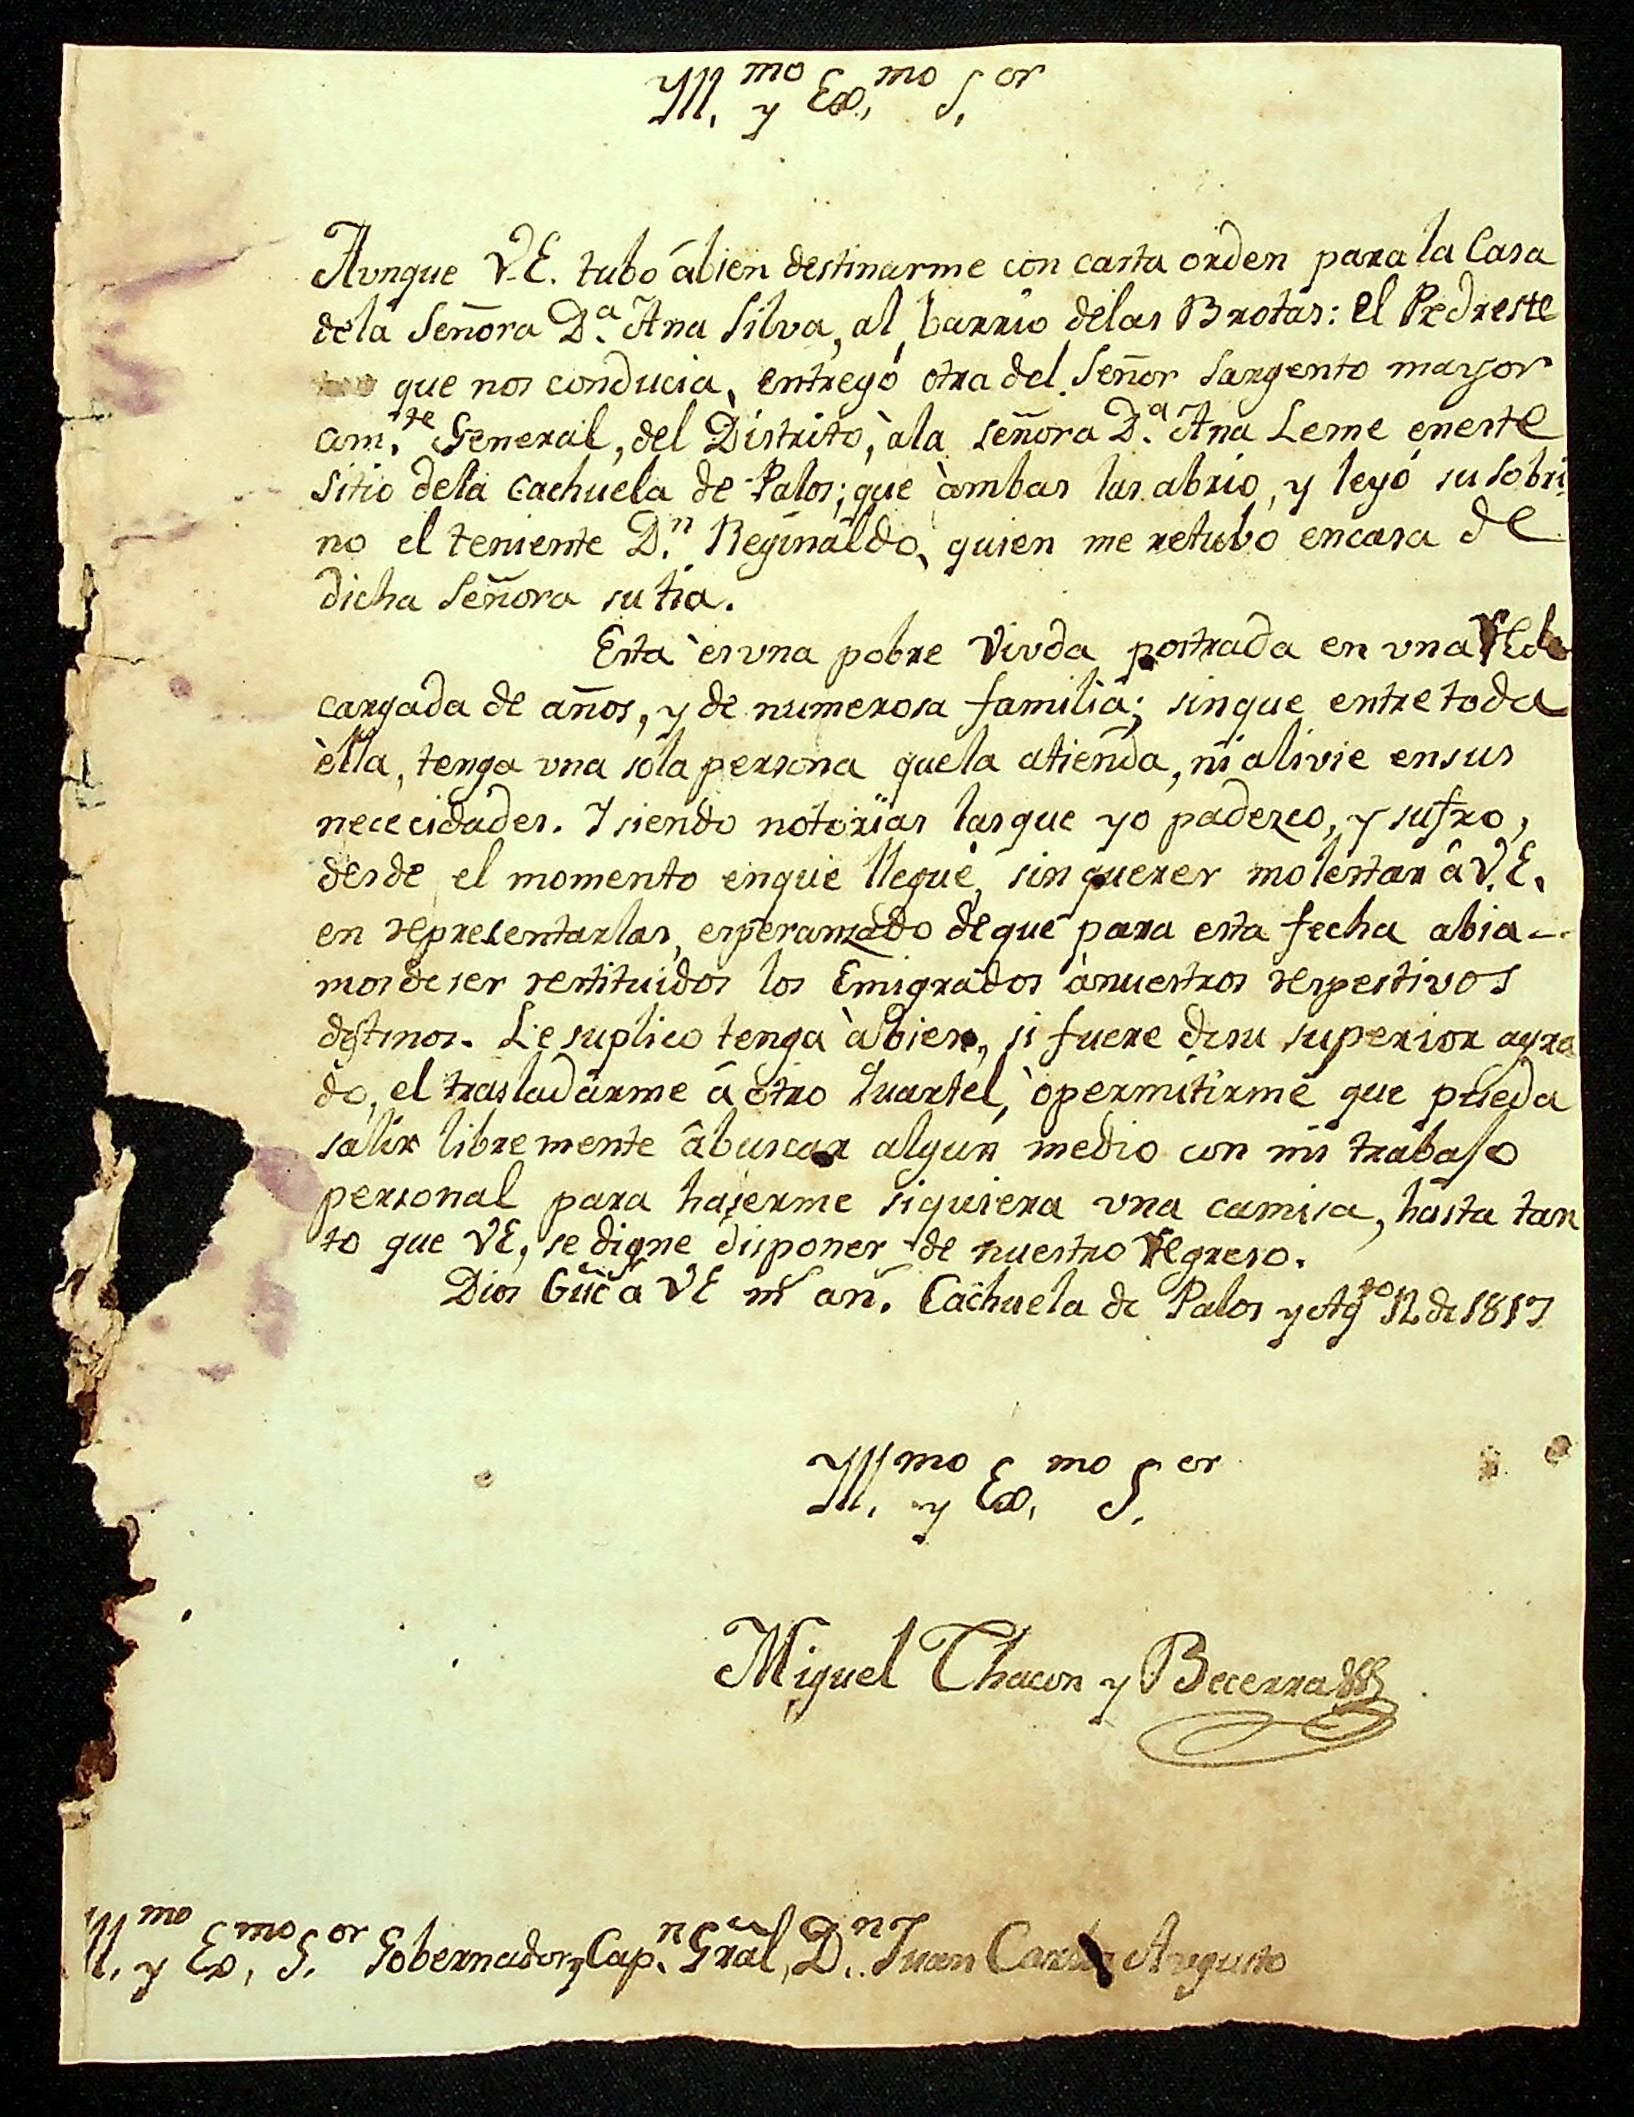 Ill.mo y Ex.mo S.or
Aunque V.E. tubo âbien destinarme con carta orden para la Casa
dela Señora D.a Ana Silva, al barrio delas Brotas: el Pedreste
que nos conducia, entregó otra del Señor Sargento mayor
com.te General, del Distrito, àla señora D.a Ana Leme eneste
sitio dela Cachuela de Palos; que àmbas las abrio, y leyó su sobri
no el teniente D.n Reginaldo, quien me retubo encasa de
dicha Señora su tia.
Esta ès una pobre Viuda postrada en una
cargada de años, y de numerosa familia; sinque entre toda
èlla, tenga una sola persona quela atienda, ni alivie ensus
nececidades. Y siendo notorias lasque yo padezco, y sufro,
desde el momento enque llegué, sin querer molestar â V.E.
en representarlas, esperanzado deque para esta fecha abia-
mos de ser restituidos los Emigrados ànuestros respestivos
destinos. Le suplico tenga àbien, si fuere desu superior agra
do, el trasladarme â otro Quartel, òpermitirme que pueda
salir libremente âbuscar algun medio con mi trabajo
personal para haserme siquiera una camisa, hasta tan
to que VE, se digne disponer de nuestro regreso.
Dios Güe â VE ms añ. Cachuela de Palos y Ag.to 12 de 1817
Ill.mo y Ex.mo S.or
Miguel Chacon y Becerra
Ill.mo y Ex.mo S.or Gobernador, y Cap.n Gral, D.n Juan Carlos Augusto